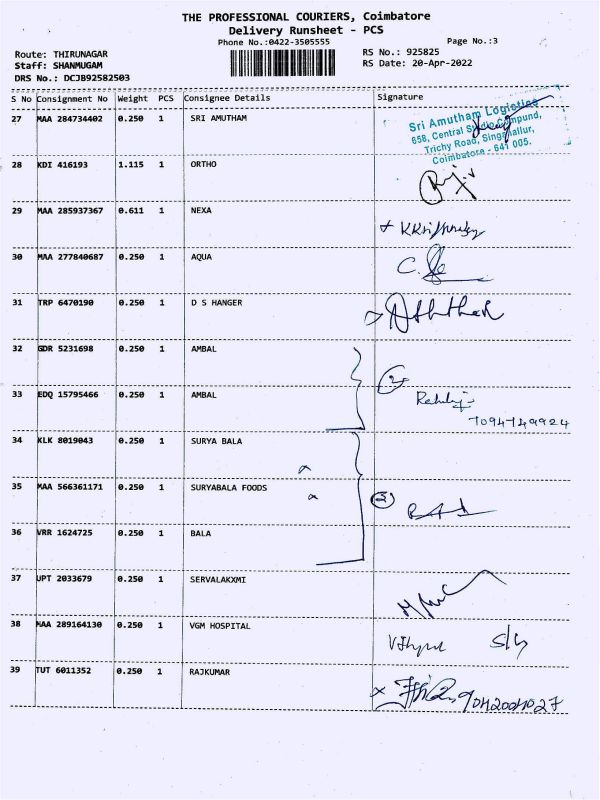 THE PROFESSIONAL COURIERS, Coimbatore
Delivery Runsheet - PCS
Phone No.:0422-3505555 Page No.:3
Route: THIRUNAGAR RS No.: 925825
Staff: SHANMUGAM RS Date: 20-Apr-2022
DRS No.: DCJB92582503
S No Consignment No Weight PCS Consignee Details Signature
27 MAA 284734402 0.250 1 SRI AMUTHAM
Sri Amutham Logistics
658, Central Studio Compound,
Trichy Road, Singanallur,
Coimbatore - 641 005.
28 KDI 416193 1.115 1 ORTHO
29 MAA 285937367 0.611 1 NEXA
30 MAA 277840687 0.250 1 AQUA
31 TRP 6470190 0.250 1 D S HANGER
32 GDR 5231698 0.250 1 AMBAL
2
33 EDQ 15795466 0.250 1 AMBAL
7094749924
34 KLK 8019043 0.250 1 SURYA BALA
35 MAA 566361171 0.250 1 SURYABALA FOODS
3
36 VRR 1624725 0.250 1 BALA
37 UPT 2033679 0.250 1 SERVALAKXMI
38 MAA 289164130 0.250 1 VGM HOSPITAL
39 TUT 6011352 0.250 1 RAJKUMAR